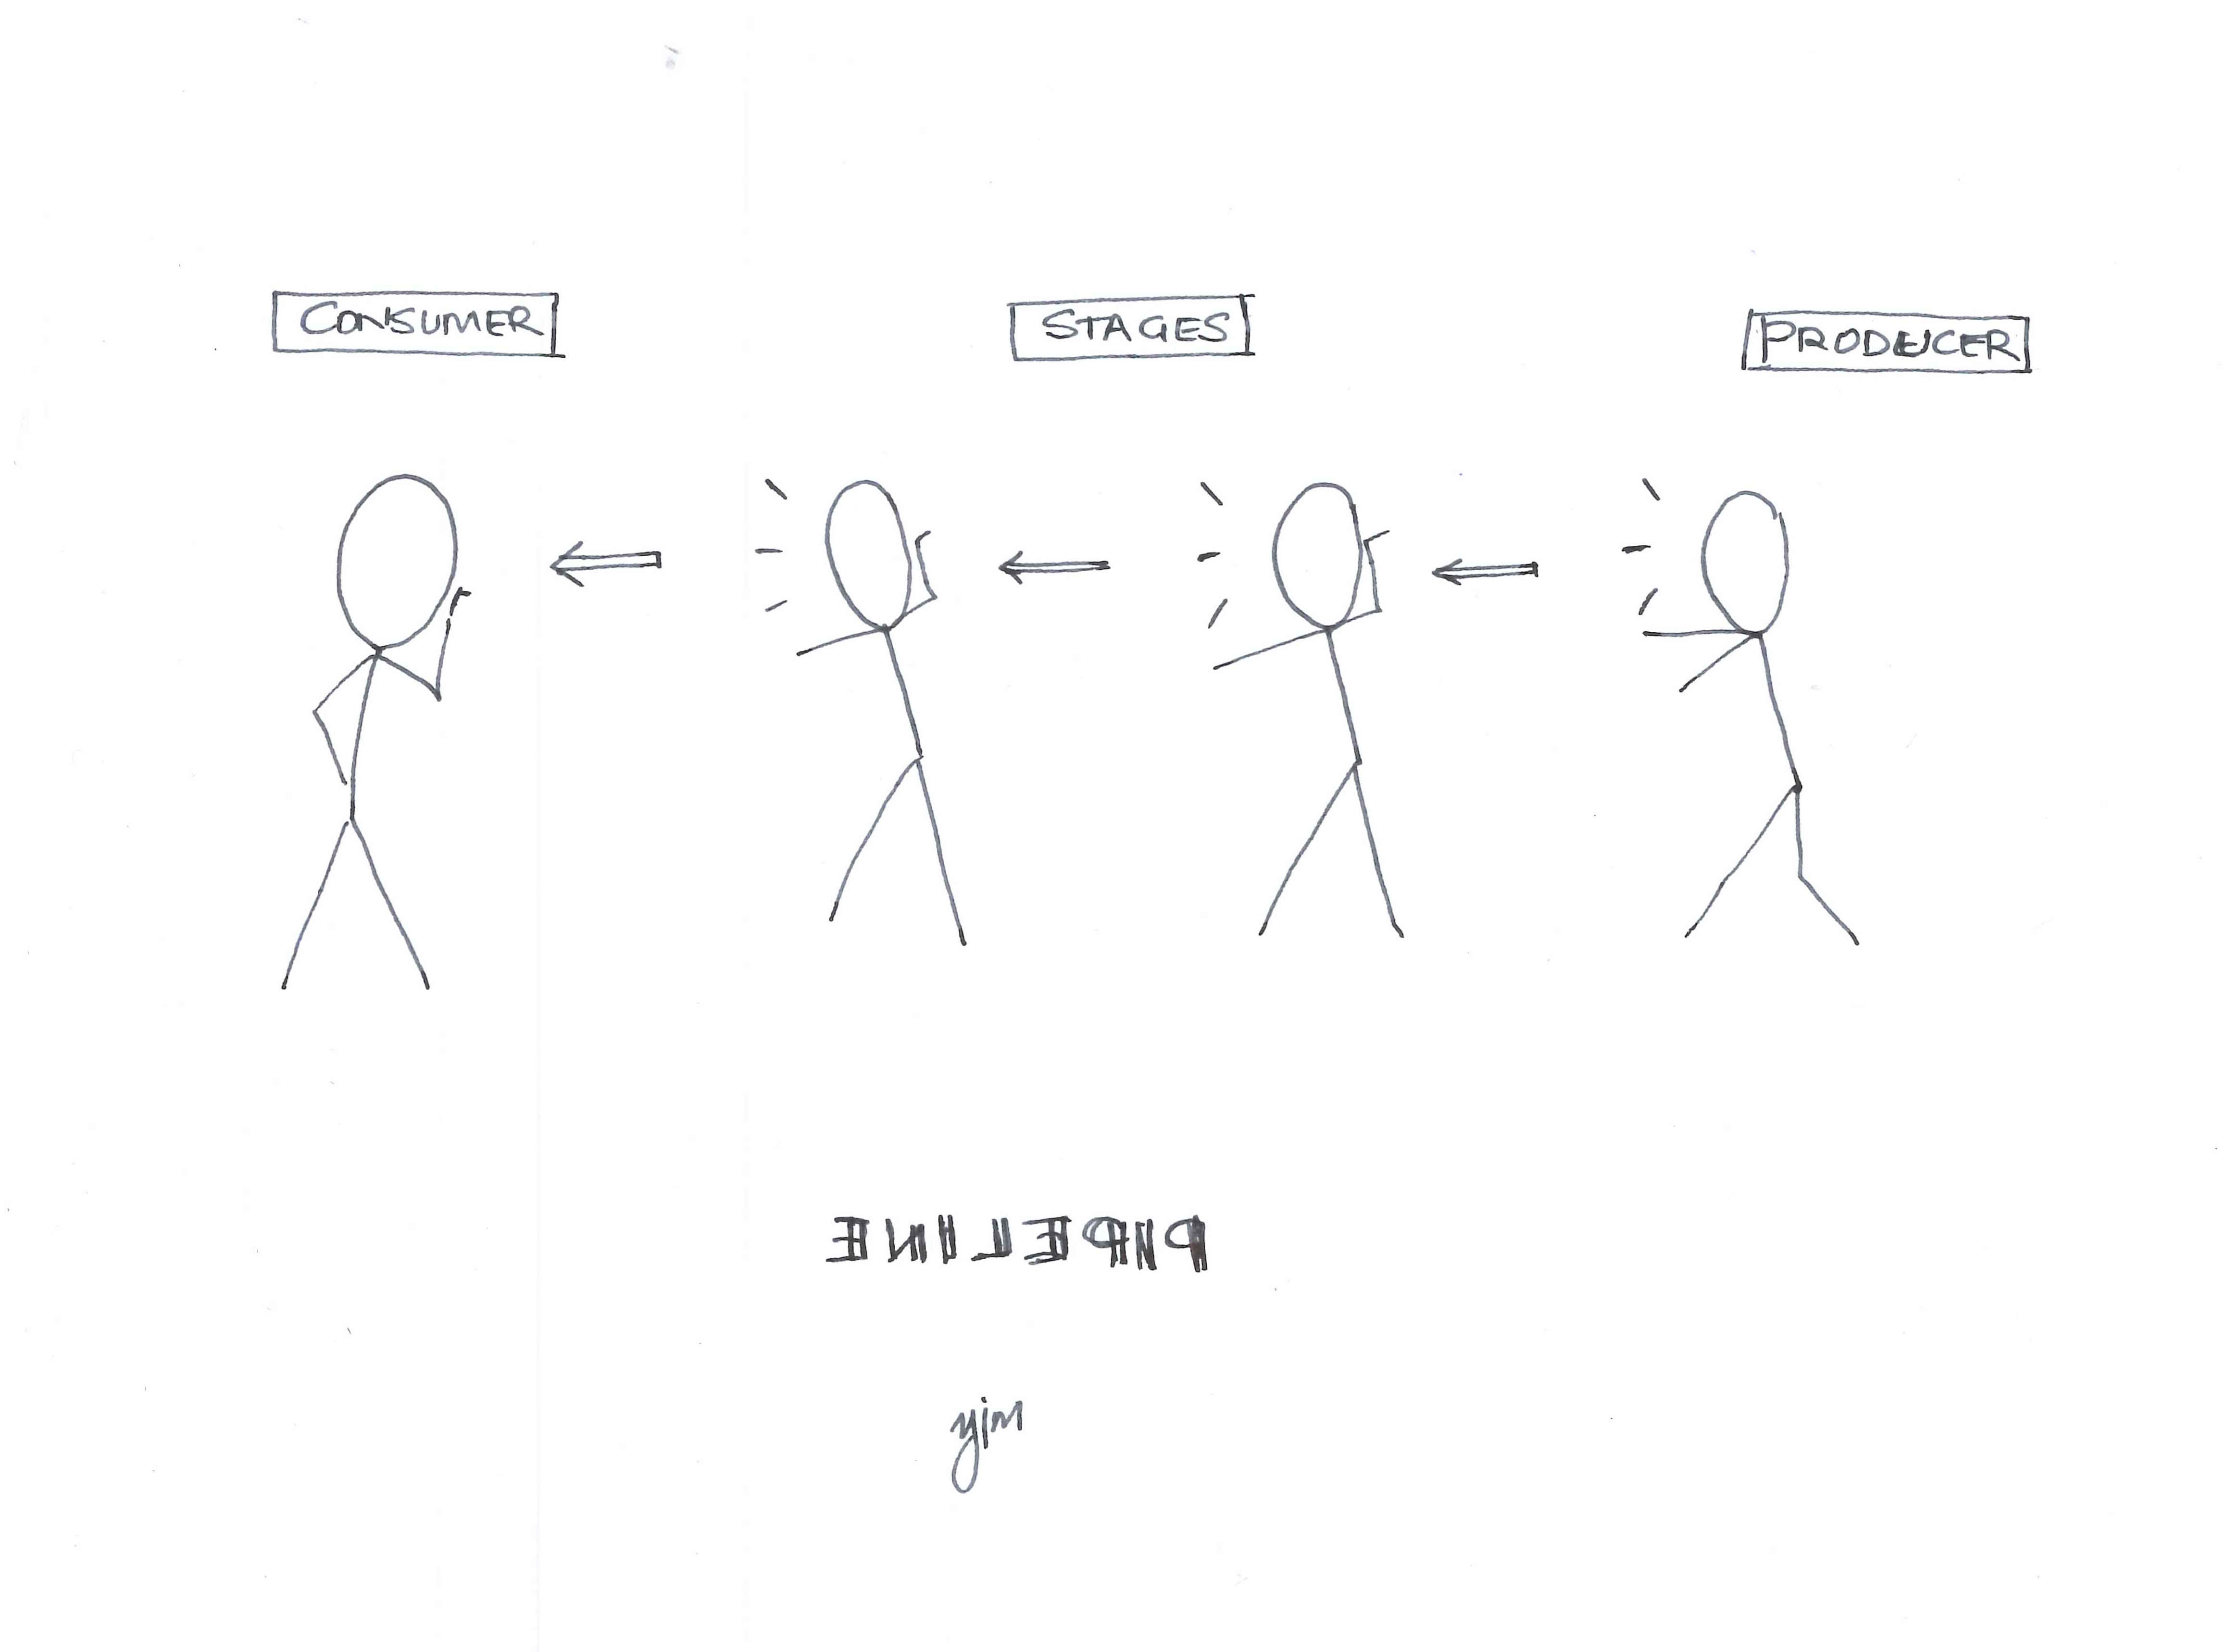 CONSUMER
STAGES
PRODUCER
PIPELINE
yim